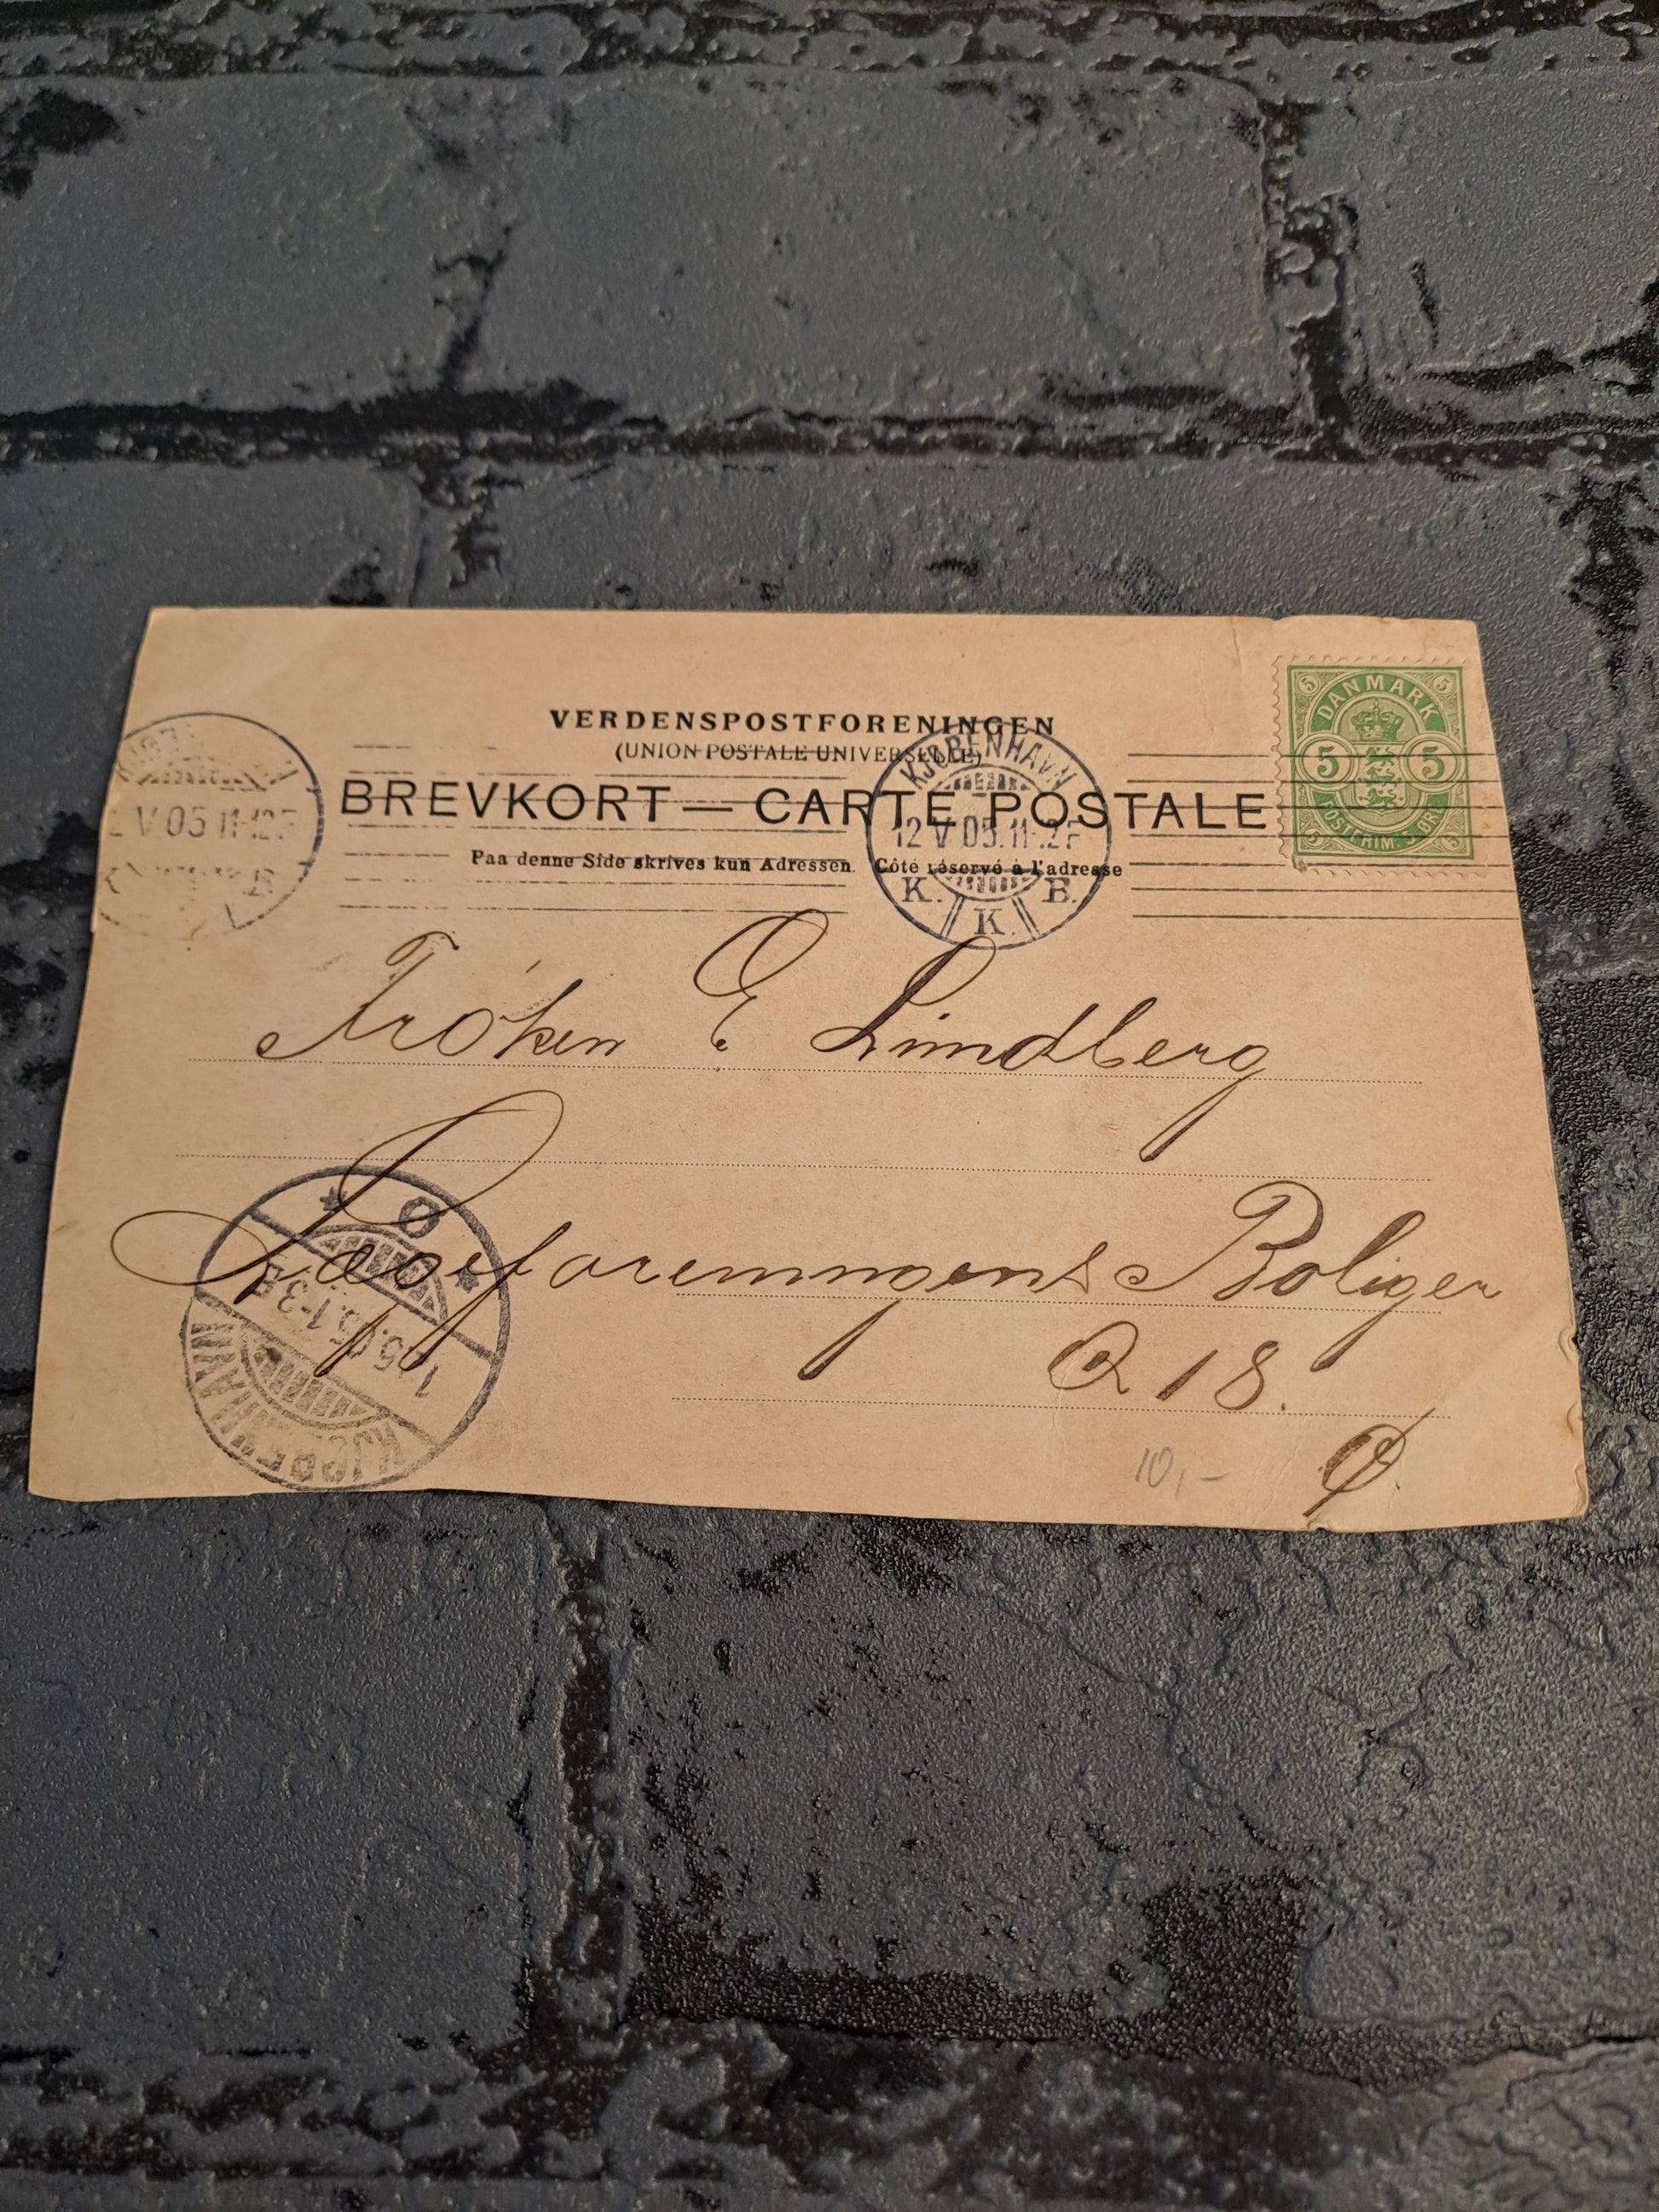 VERDENSPOSTFORENINGEN
(UNION POSTALE UNIVERSELLE)
BREVKORT — CARTE POSTALE
Paa denne Side skrives kun Adressen. Côté réservé à l'adresse
DANMARK
5 5
5 5
5 5
POSTFRIM. 5 ØRE
V 05 11-12 F
KJØBENHAVN
12 V 05. 11-12 F
K. K. B.
Frøken E Lindberg
Lægeforeningens Boliger
18.
Ø.
10,-
Ø
1-3 E
KJØBENHAVN